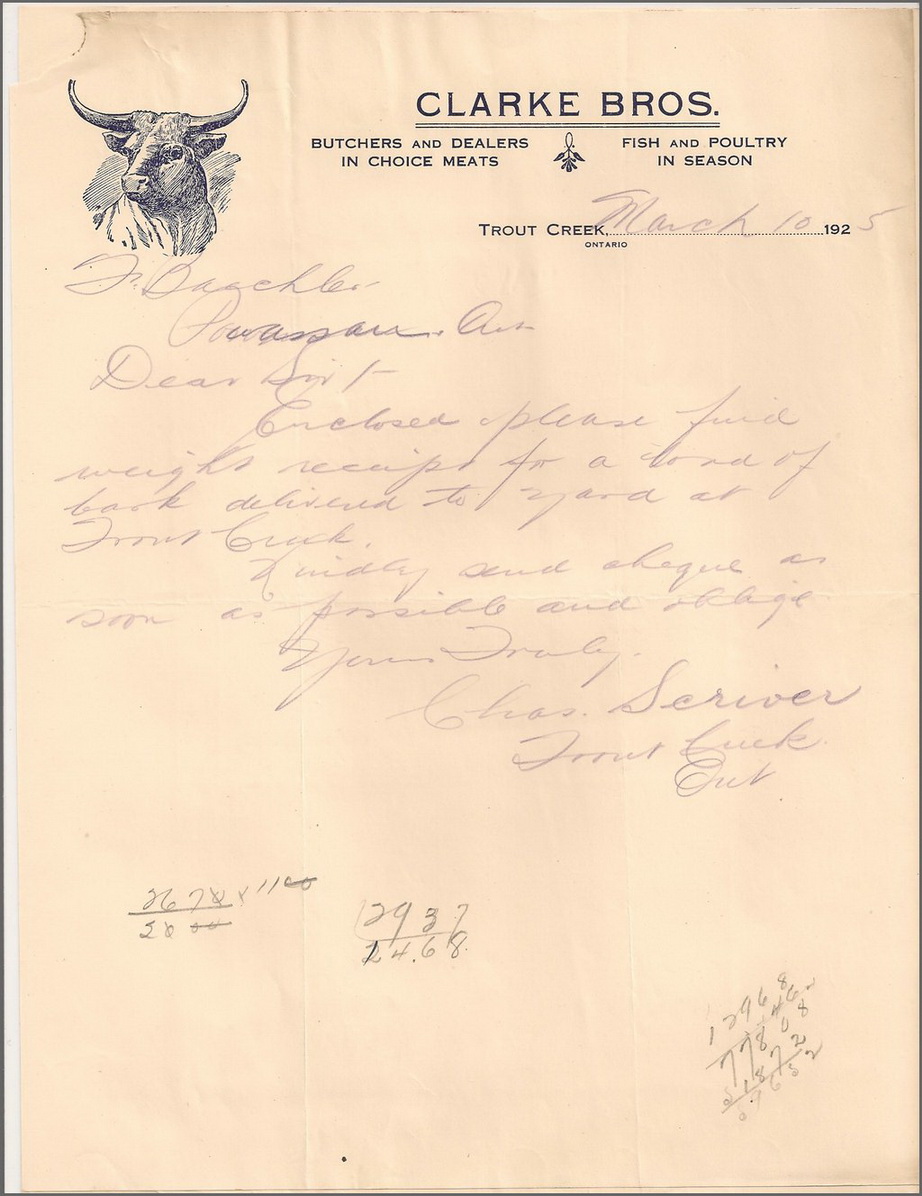 CLARKE BROS.
BUTCHERS AND DEALERS
IN CHOICE MEATS
FISH AND POULTRY
IN SEASON
TROUT CREEK, March 10 1925
ONTARIO
F. Baechler
Powassan. Ont
Dear Sir :-
Enclosed please find
weight receipt for a load of
bark delivered to yard at
Trout Creek.
Kindly send cheque as
soon as possible and oblige
Yours Truly.
Chas. Scriver
Trout Creek.
Ont
2937
24.68